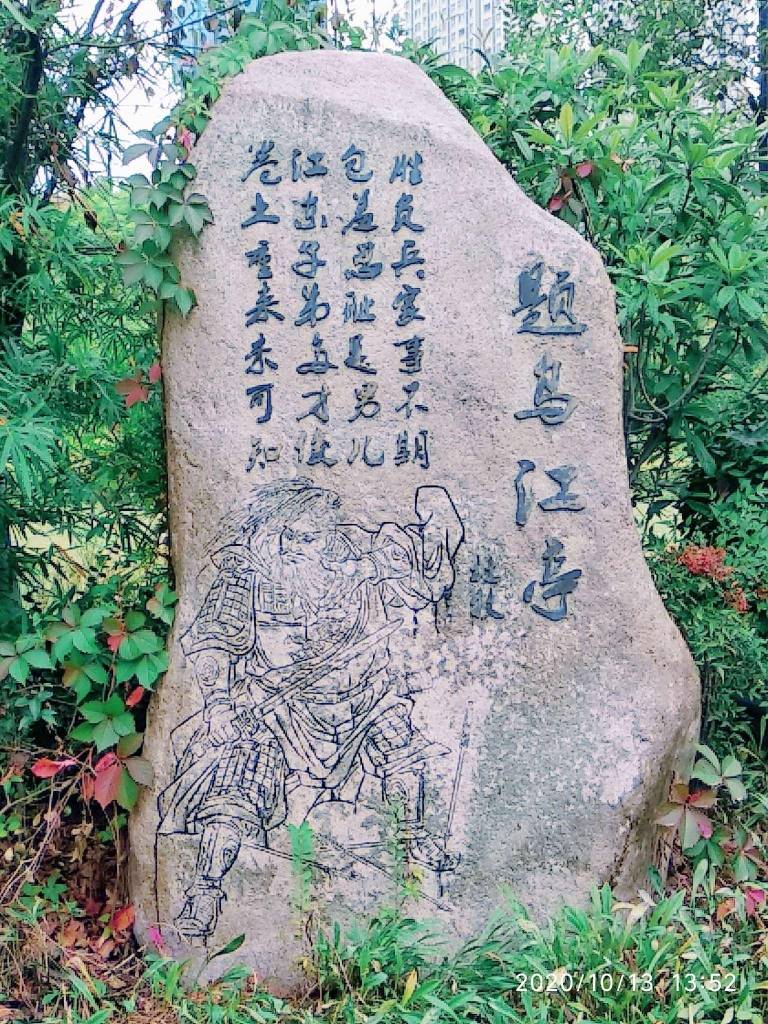 题乌江亭
杜牧
胜负兵家事不期
包羞忍耻是男儿
江东子弟多才俊
卷土重来未可知
2020/10/13 13:52